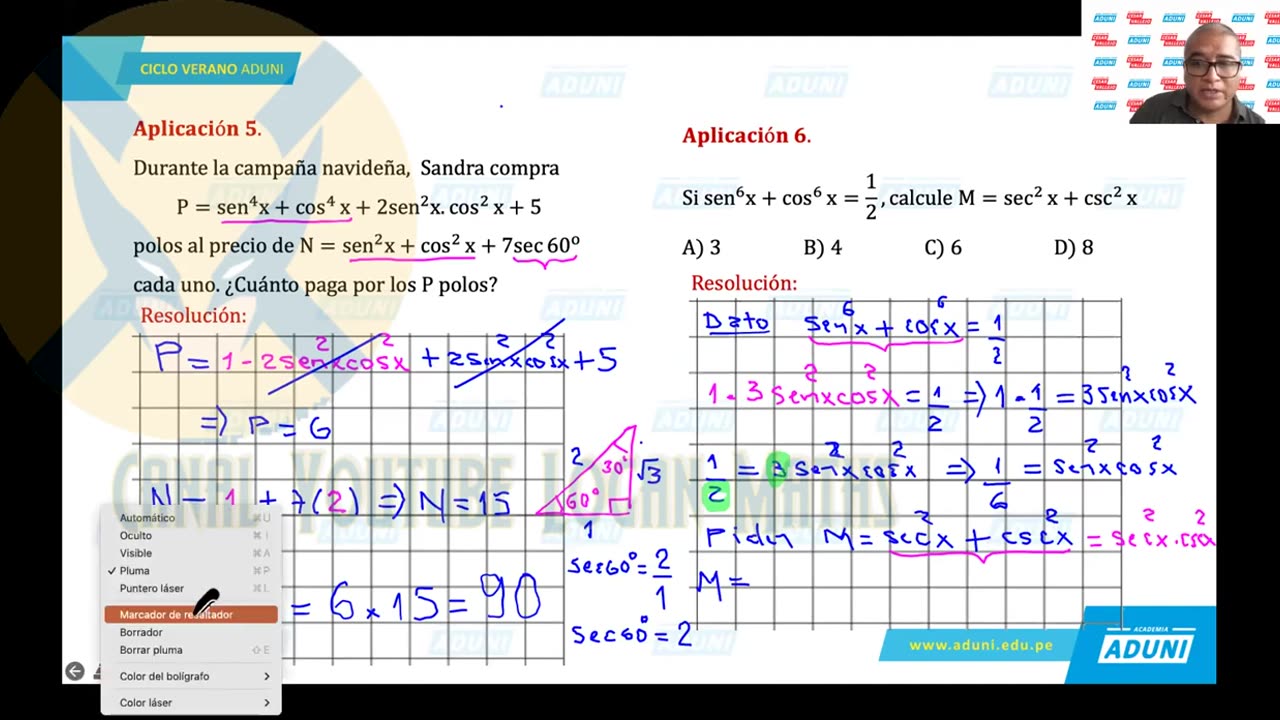 CICLO VERANO ADUNI
Aplicación 5.
Durante la campaña navideña, Sandra compra
P = sen⁴x + cos⁴ x + 2sen²x. cos² x + 5
polos al precio de N = sen²x + cos² x + 7sec 60º
cada uno. ¿Cuánto paga por los P polos?
Resolución:
P = 1 - 2sen²xcos²x + 2sen²xcos²x + 5
=> P = 6
N = 1 + 7(2) => N = 15
= 6 x 15 = 90
2
30°
√3
60°
1
sec60° = 2/1
sec60° = 2
Aplicación 6.
Si sen⁶x + cos⁶ x = 1/2, calcule M = sec² x + csc² x
A) 3 B) 4 C) 6 D) 8
Resolución:
Dato sen⁶x + cos⁶x = 1/2
1 - 3 sen²xcos²x = 1/2 => 1 - 1/2 = 3sen²xcos²x
1/2 = 3 sen²xcos²x => 1/6 = sen²xcos²x
Piden M = sec²x + csc²x = sec²x.csc²x
M =
Automático ⌘U
Oculto ⌘I
Visible ⌘A
✓ Pluma ⌘P
Puntero láser ⌘L
Marcador de resaltador
Borrador
Borrar pluma ⇧E
Color del bolígrafo >
Color láser >
www.aduni.edu.pe
ACADEMIA
ADUNI
Canal Youtube Logan Matas
ADUNI
CESAR VALLEJO